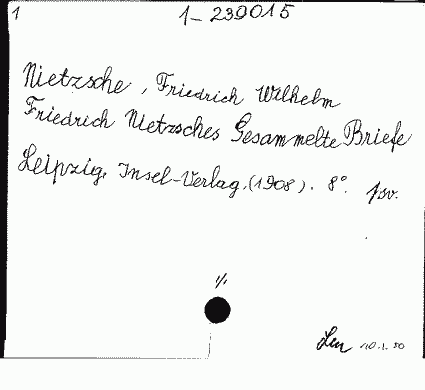 1
1-239015
Nietzsche, Friedrich Wilhelm
Friedrich Nietzsches Gesammelte Briefe
Leipzig, Insel-Verlag, (1908). 8°. 1 sv.
1/1